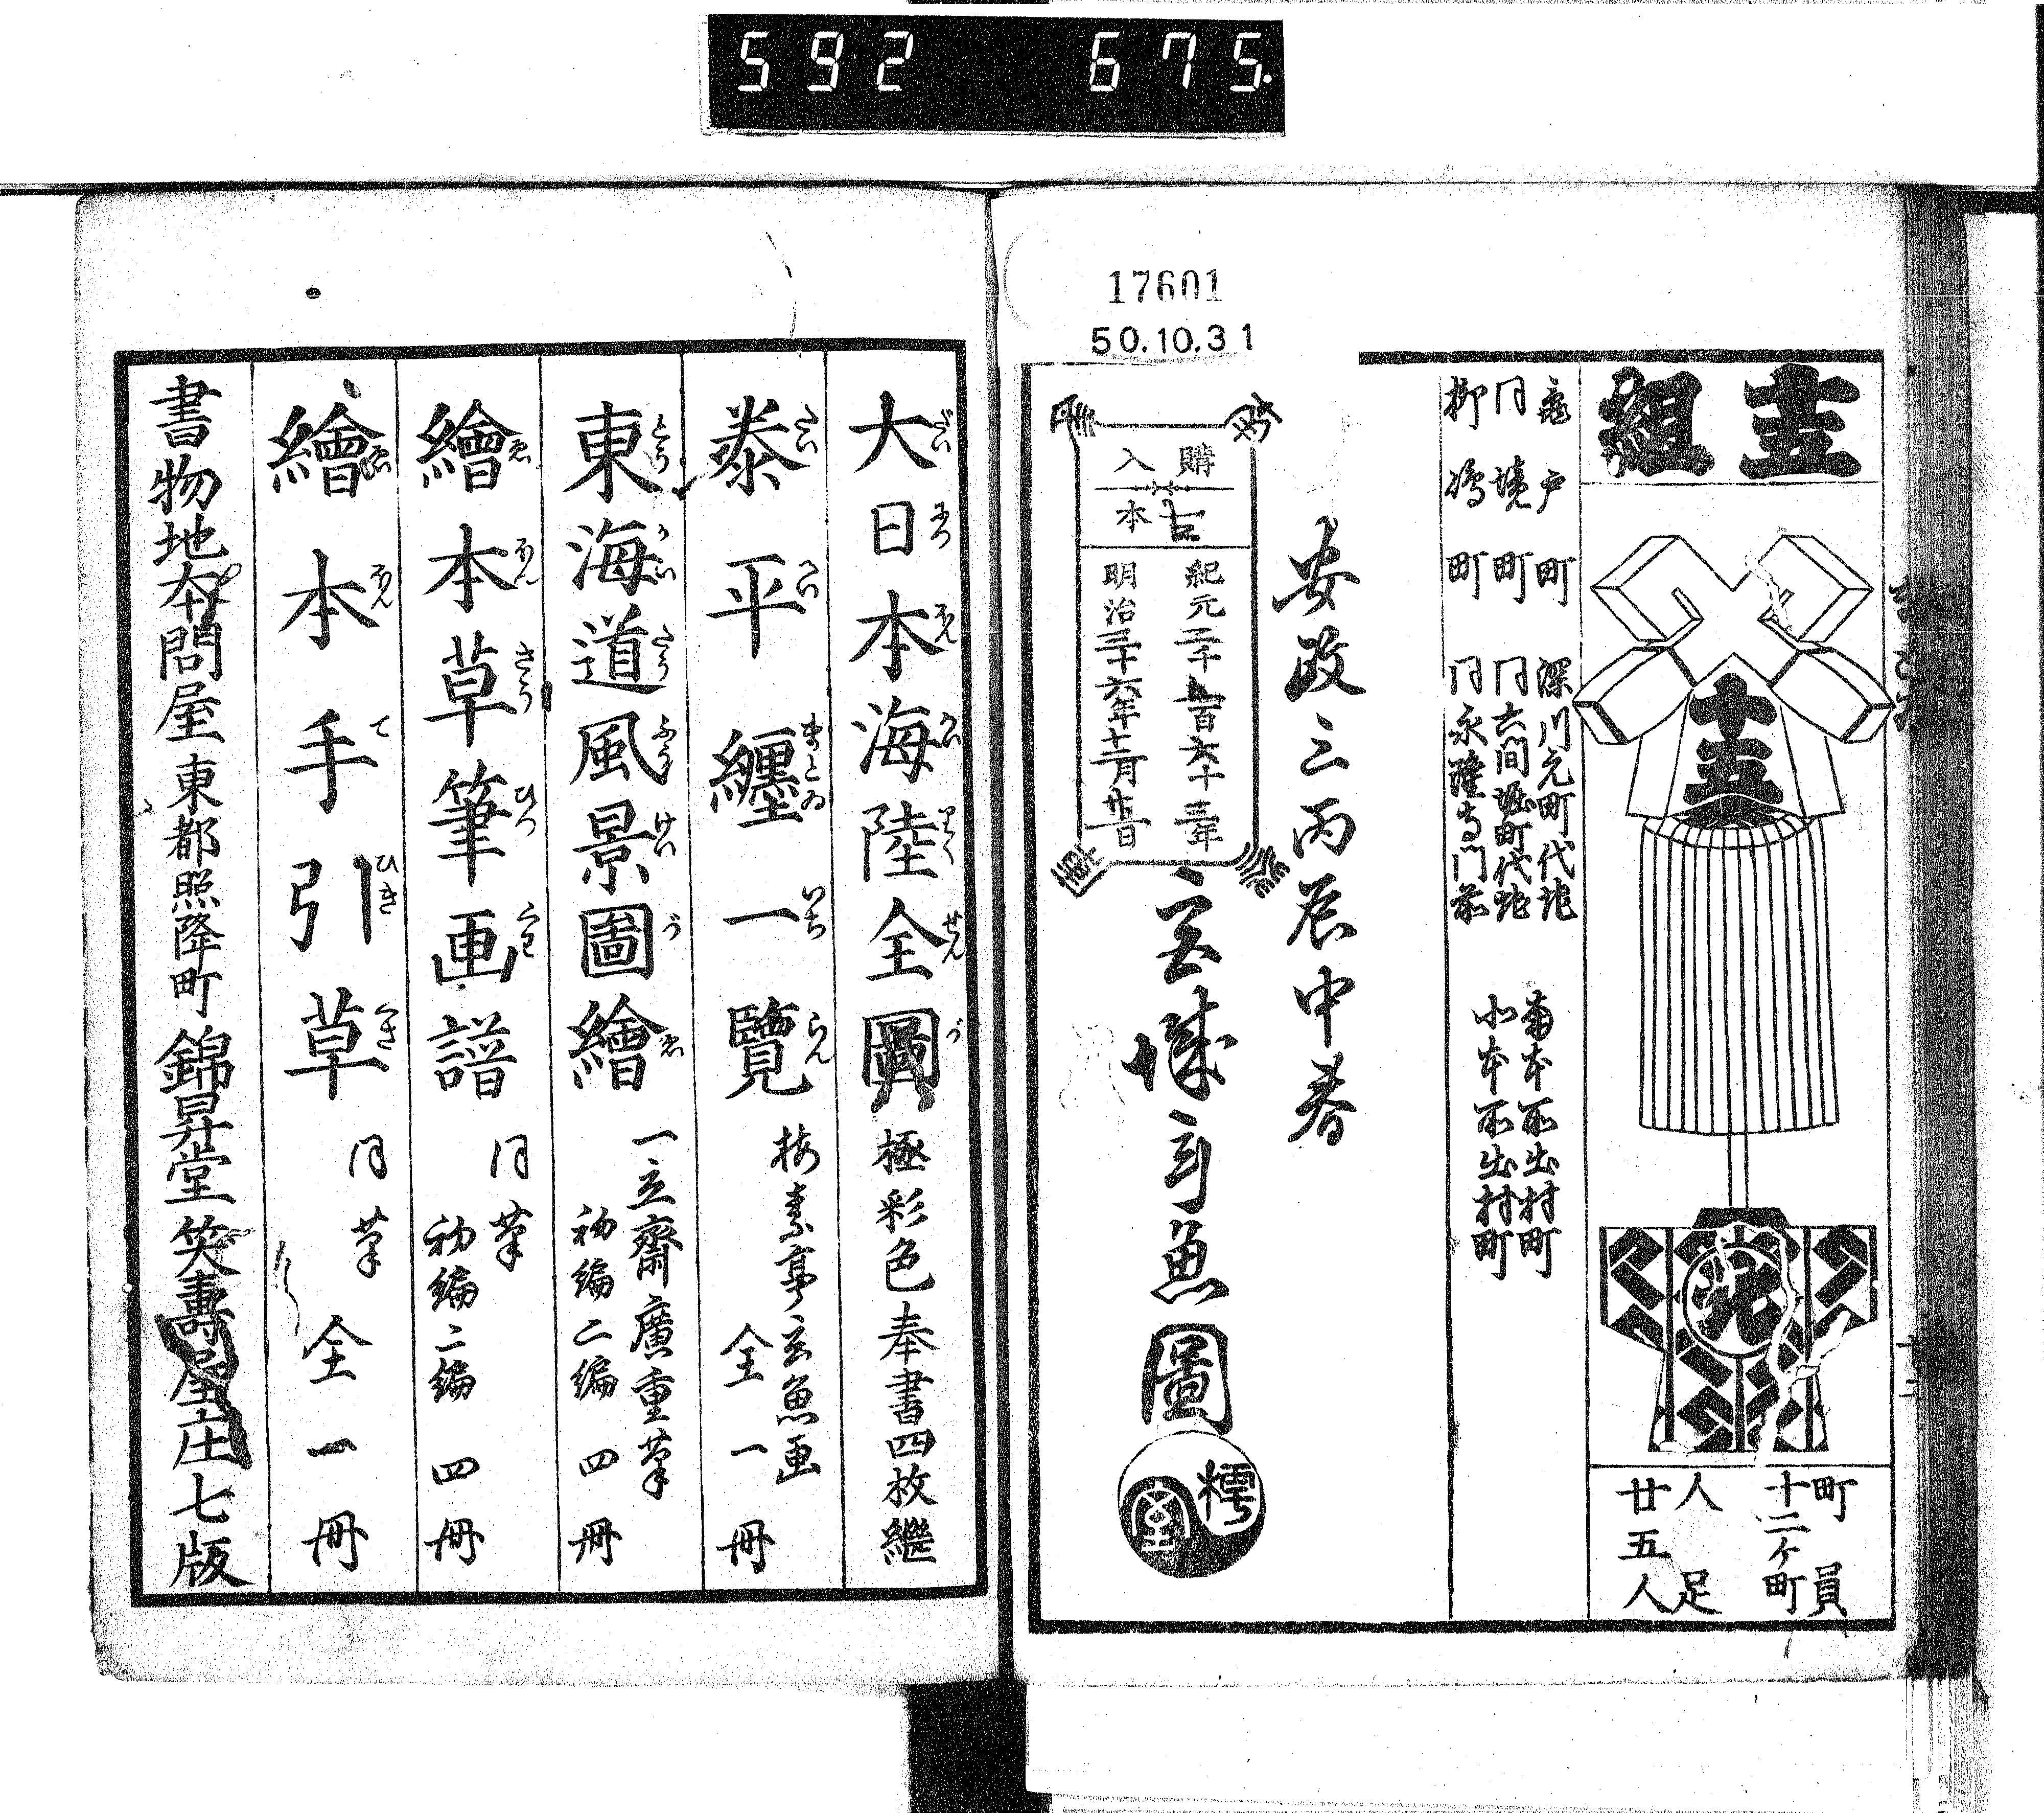 592 675.
17601
50.10.31
十五
組
十五
町員
十二ケ町
人足
廿五人
亀戸町
同境町
柳嶋町
深川元町代地
同六間堀町代地
同永隆寺門前
南本所出村町
北本所出村町
安政三丙辰中春
玄魚図
購入
古本
紀元二千五百六十三年
明治三十六年十二月廿五日
大日本海陸全圖 極彩色奉書四枚繼
泰平纏一覽 梅素亭玄魚画 全一冊
東海道風景圖繪 一立齋廣重筆 初編二編 四冊
繪本草筆画譜 同筆 初編二編 四冊
繪本手引草 同筆 全一冊
書物地本問屋 東都照降町 錦昇堂 笑壽屋庄七版